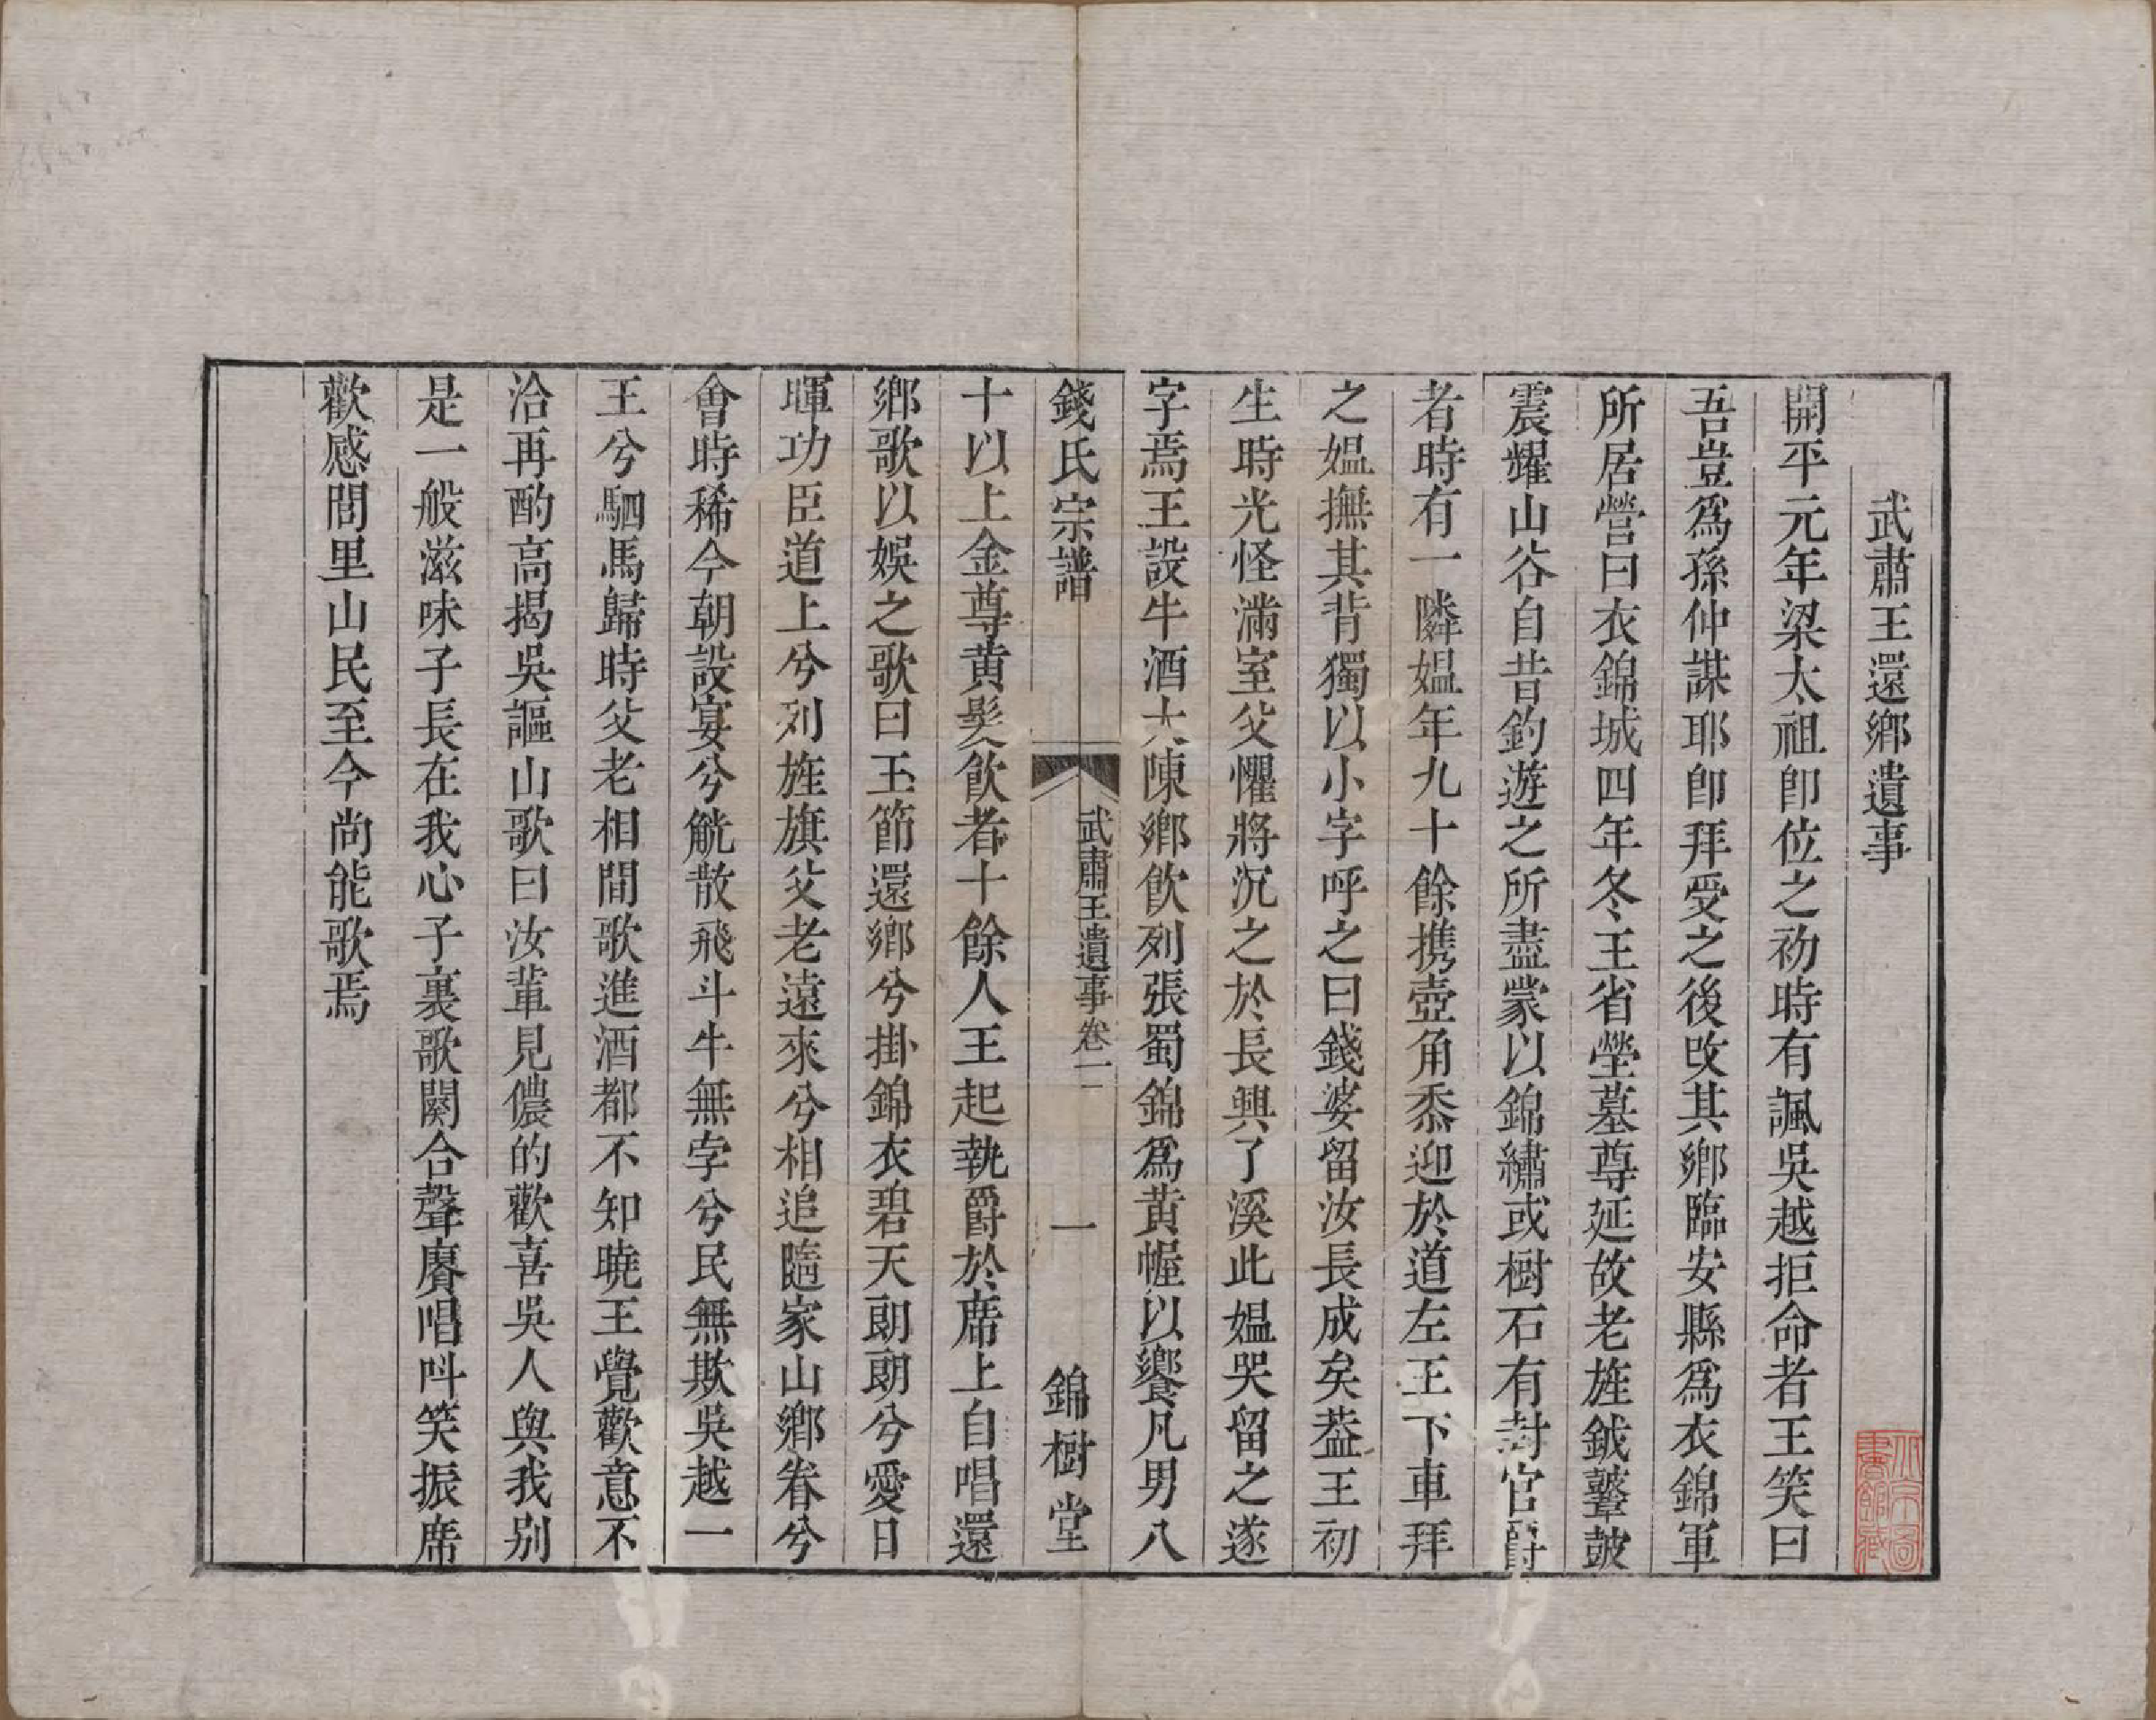 武肅王還鄉遺事
開平元年梁太祖卽位之初時有諷吳越拒命者王笑曰
吾豈爲孫仲謀耶卽拜受之後改其鄉臨安縣爲衣錦軍
所居營曰衣錦城四年冬王省塋墓尊延故老旌鉞鼙皷
震耀山谷自昔釣遊之所盡蒙以錦繡或樹石有封官爵
者時有一隣媼年九十餘携壺角黍迎於道左王下車拜
之媼撫其背獨以小字呼之曰錢婆留汝長成矣葢王初
生時光怪滿室父懼將沉之於長興了溪此媼哭留之遂
字焉王設牛酒大陳鄉飲列張蜀錦爲黃幄以饗凡男八
錢氏宗譜
武肅王遺事卷一
一
錦樹堂
十以上金尊黃髮飲者十餘人王起執爵於席上自唱還
鄉歌以娛之歌曰玉節還鄉兮掛錦衣碧天朗朗兮愛日
暉功臣道上兮列旌旗父老遠來兮相追隨家山鄉眷兮
會時稀今朝設宴兮觥散飛斗牛無孛兮民無欺吳越一
王兮駟馬歸時父老相間歌進酒都不知曉王覺歡意不
洽再酌高揭吳謳山歌曰汝輩見儂的歡喜吳人與我别
是一般滋味子長在我心子裏歌闋合聲賡唱呌笑振席
歡感閭里山民至今尚能歌焉